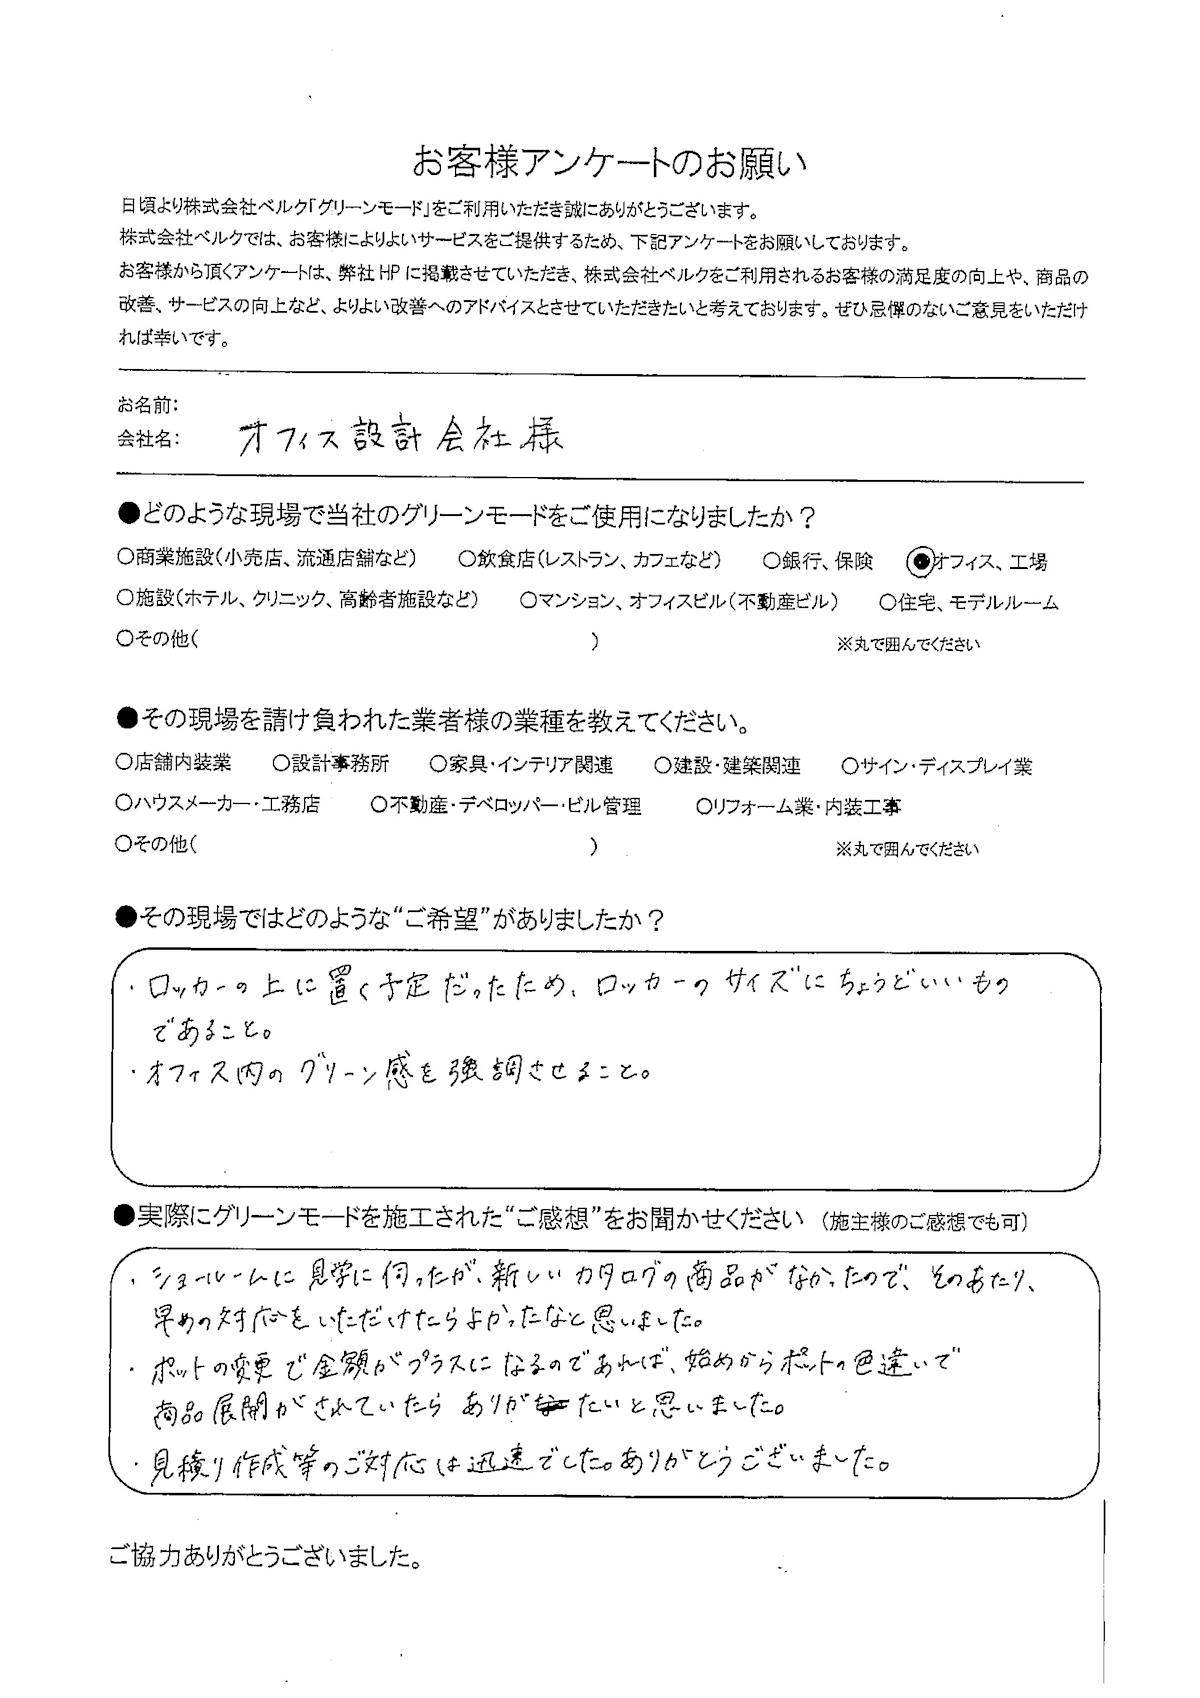 お客様アンケートのお願い
日頃より株式会社ベルク「グリーンモード」をご利用いただき誠にありがとうございます。
株式会社ベルクでは、お客様によりよいサービスをご提供するため、下記アンケートをお願いしております。
お客様から頂くアンケートは、弊社HPに掲載させていただき、株式会社ベルクをご利用されるお客様の満足度の向上や、商品の
改善、サービスの向上など、よりよい改善へのアドバイスとさせていただきたいと考えております。ぜひ忌憚のないご意見をいただけ
れば幸いです。
お名前:
会社名: オフィス設計会社様
●どのような現場で当社のグリーンモードをご使用になりましたか？
○商業施設(小売店、流通店舗など) ○飲食店(レストラン、カフェなど) ○銀行、保険 ◉オフィス、工場
○施設(ホテル、クリニック、高齢者施設など) ○マンション、オフィスビル(不動産ビル) ○住宅、モデルルーム
○その他( ) ※丸で囲んでください
●その現場を請け負われた業者様の業種を教えてください。
○店舗内装業 ○設計事務所 ○家具・インテリア関連 ○建設・建築関連 ○サイン・ディスプレイ業
○ハウスメーカー・工務店 ○不動産・デベロッパー・ビル管理 ○リフォーム業・内装工事
○その他( ) ※丸で囲んでください
●その現場ではどのような“ご希望”がありましたか？
・ロッカーの上に置く予定だったため、ロッカーのサイズにちょうどいいもの
であること。
・オフィス内のグリーン感を強調させること。
●実際にグリーンモードを施工された“ご感想”をお聞かせください (施主様のご感想でも可)
・ショールームに見学に伺ったが、新しいカタログの商品がなかったので、そのあたり、
早めの対応をいただけたらよかったなと思いました。
・ポットの変更で金額がプラスになるのであれば、始めからポットの色違いで
商品展開がされていたらありがたいと思いました。
・見積り作成等のご対応は迅速でした。ありがとうございました。
ご協力ありがとうございました。